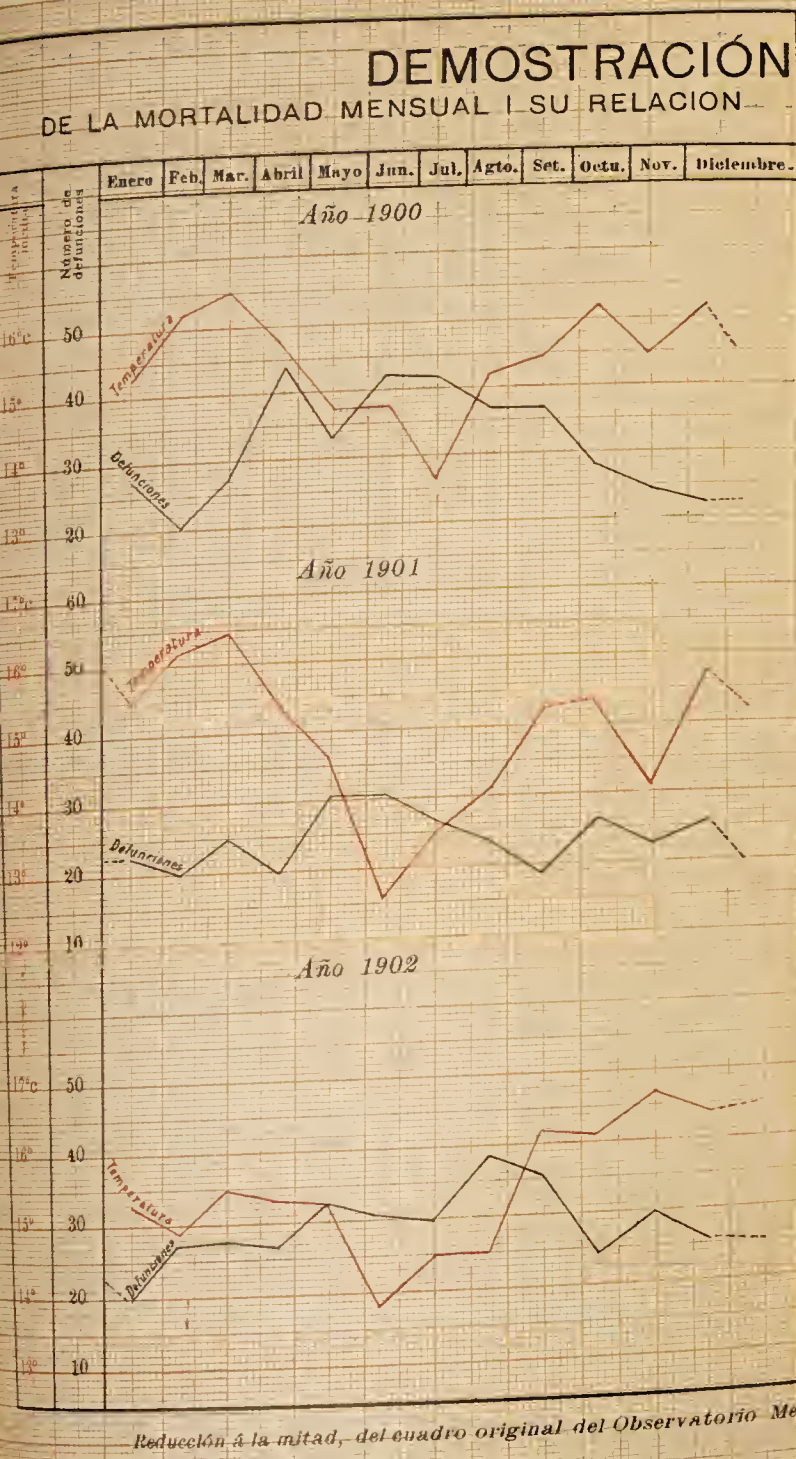 DEMOSTRACIÓN
DE LA MORTALIDAD MENSUAL I SU RELACION
Temperatura
Número de
defunciones
Enero Feb. Mar. Abril Mayo Jun. Jul. Agto. Set. Octu. Nov. Diciembre.
Año 1900
16°c 50
15° 40
14° 30
13° 20
Temperatura
Defunciones
Año 1901
17°c 60
16° 50
15° 40
14° 30
13° 20
12° 10
Temperatura
Defunciones
Año 1902
17°c 50
16° 40
15° 30
14° 20
13° 10
Temperatura
Defunciones
Reducción á la mitad, del cuadro original del Observatorio Me